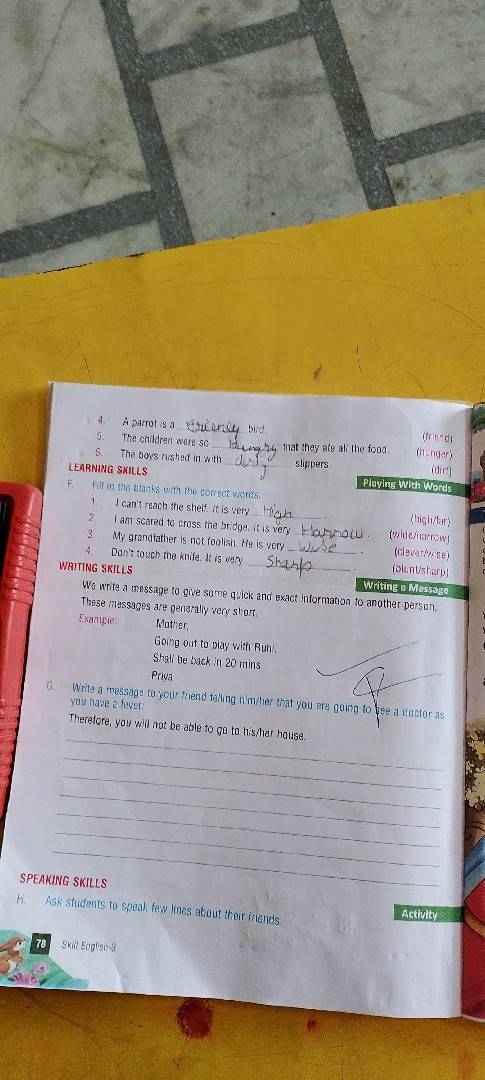 4. A parrot is a Frienly bird. (friend)
5. The children were so Hungry that they ate all the food. (hunger)
6. The boys rushed in with dirty slippers. (dirt)
LEARNING SKILLS
Playing With Words
F. Fill in the blanks with the correct words.
1. I can't reach the shelf. It is very High. (high/far)
2. I am scared to cross the bridge. It is very Harrow. (wide/narrow)
3. My grandfather is not foolish. He is very Wise. (clever/wise)
4. Don't touch the knife. It is very Sharp. (blunt/sharp)
WRITING SKILLS
Writing a Message
We write a message to give some quick and exact information to another person.
These messages are generally very short.
Example: Mother,
Going out to play with Ruhi.
Shall be back in 20 mins.
Priya
G. Write a message to your friend telling him/her that you are going to see a doctor as
you have a fever.
Therefore, you will not be able to go to his/her house.
SPEAKING SKILLS
Activity
H. Ask students to speak few lines about their friends.
78 Skill English-3